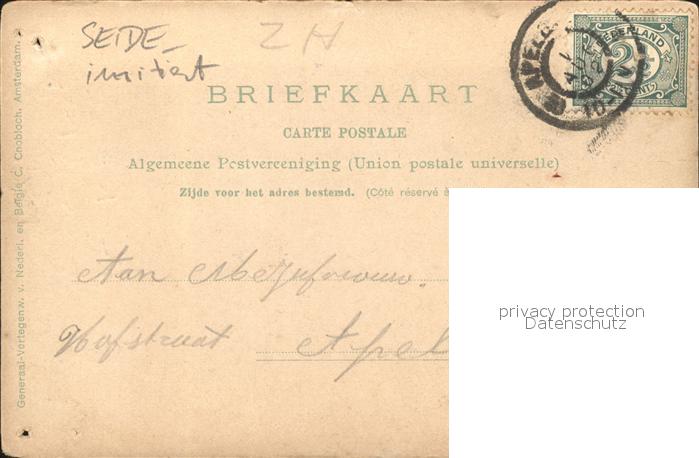 SEIDE-
imitiert
ZH
APELD
NEDERLAND
2½
CENT
BRIEFKAART
CARTE POSTALE
Algemeene Postvereeniging (Union postale universelle)
Zijde voor het adres bestemd. (Côté réservé à
Aan Mejufvrouw.
Hofstraat Apel
privacy protection
Datenschutz
Generaal-Vertegenw. v. Nederl. en België C. Cnobloch, Amsterdam.